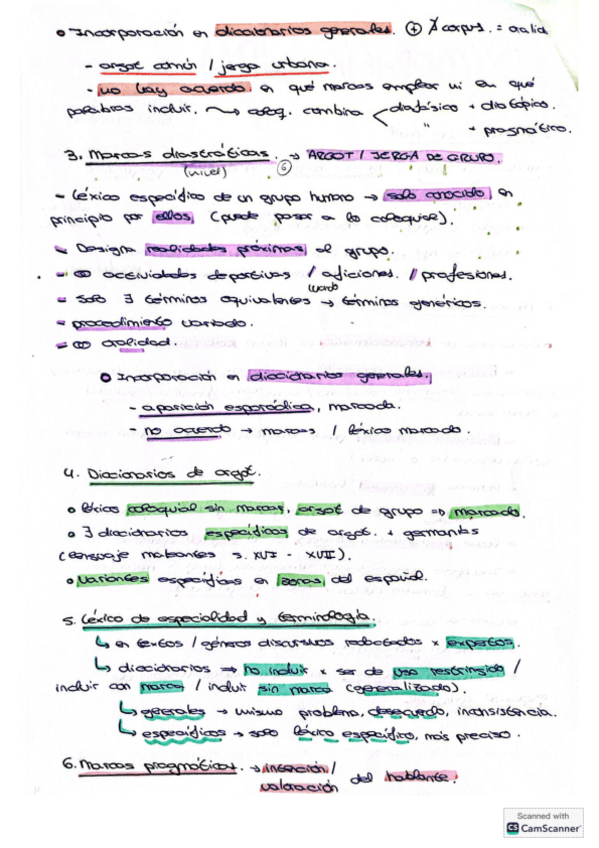 • Incorporación en diccionarios generales. ⊕ ∄ corpus. = oralid
- argot común / jerga urbana.
- no hay acuerdo en qué marcas emplear ni en qué
palabras incluir. → coloq. combina < diafásico + diatópico.
" + pragmático.
3. Marcas diastráticas. → ARGOT / JERGA DE GRUPO.
(nivel) 6
- Léxico específico de un grupo humano → solo conocido en
principio por ellos (puede pasar a lo coloquial).
- Designa realidades próximas al grupo.
- actividades deportivas / aficiones. / profesiones.
- Solo ∃ términos equivalentes → términos genéricos.
- procedimiento variado.
- oralidad.
• Incorporación en diccionarios generales.
- aparición esporádica, marcada.
- no acuerdo → marcas / léxico marcado.
4. Diccionarios de argot.
• léxico coloquial sin marcas, argot de grupo => marcado.
• ∃ diccionarios específicos de argot. + germanías
(lenguaje maleantes s. XVI - XVII).
• Variantes específicas en zonas del español.
5. Léxico de especialidad y terminología.
↳ en textos / géneros discursivos redactados x expertos.
↳ diccionarios => no incluir x ser de uso restringido /
incluir con marca / incluir sin marca (generalizado).
↳ generales → mismo problema, desacuerdo, inconsistencia.
↳ específicos → solo léxico específico, más preciso.
6. Marcas pragmáticas. → intención /
valoración del hablante.
Scanned with
CS CamScanner